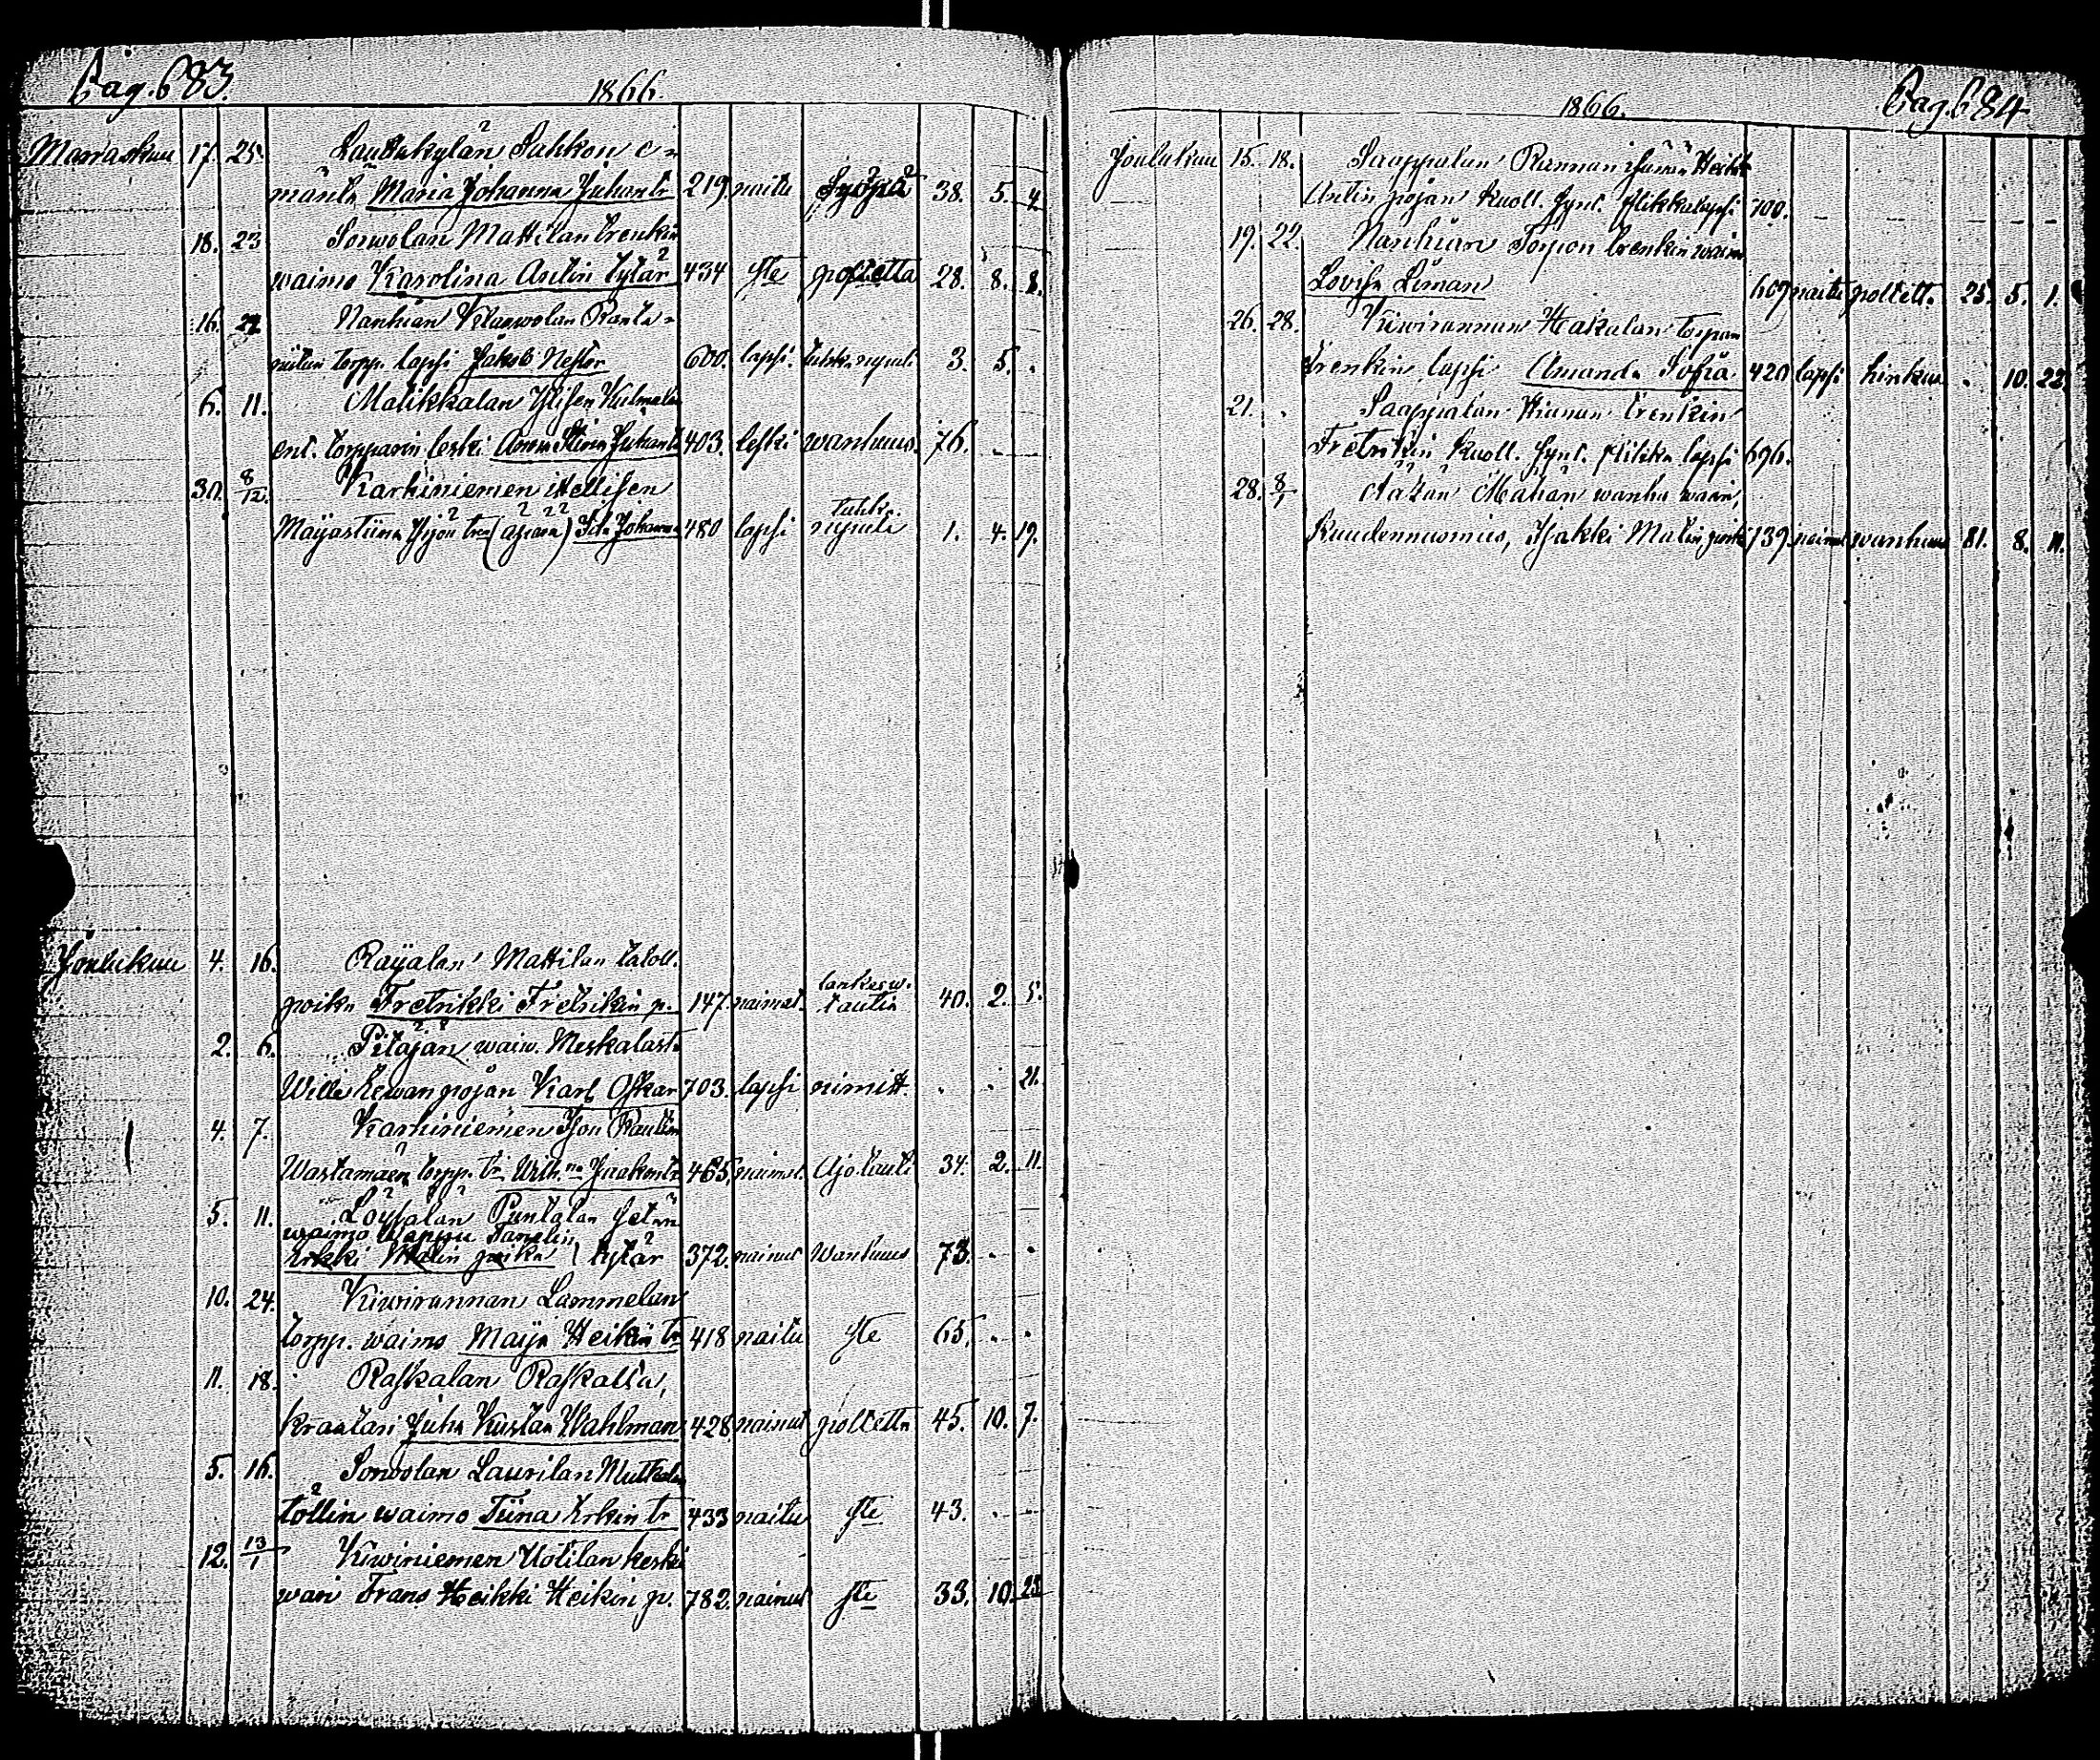 Pag. 683.
1866.
Marraskuu 17. 25. Lautakylän Sahkon e-
mäntä Maria Johanna Juhan tr 219. naitu Syöpiä 38. 5. 4.
18. 23 Sorwolan Mattilan trenkin
waimo Karolina Antin tytär 434 ste poltetta 28. 8. 8.
16. 22 Nanhian Ranta-
torpp. lapsi Jakob Nestor 600. lapsi. tuhk. rupuli 3. 5. .
6. 11. Mälikkälän Ylisen Kulmalan
ent. torpparin leski Anna Stiina Juhan tr 403. leski wanhuus. 76. .
30. 8/12. Karhiniemen itellisen
Maijastiina Yrjön tren (äpärä) Ida Johanna 480 lapsi tuhk. rupuli 1. 4. 19.
Joulukuu 4. 16. Raijalan Mattilan taloll.
poika Fretrikki Fretrikin p. 147. naimat. lankeew. tautiin 40. 2. 5.
2. 6. Pitäjän waiw. Meskalast.
Wille Lewan pojan Karl Oskar 703. lapsi nimitt. . . 21.
4. 7. Karhiniemen Ison Rautin
Wastamäen torpp. tr Wilh:na Jaakon tr 465. naimat. Ajo tauti 34. 2. 11.
5. 11. Löysälän Puntalan setän
waimo Wappu Tanelin
Erkki Matin poika tytär 372. nainut Wanhuus 73. . .
10. 24. Kiwirannan Lammelan
torpp. waimo Maija Heikin tr 418 naitu ste 65. . .
11. 18. Raskalan Raskalla,
kraatari Juha Kustaa Wahlman 428. nainut poltetta 45. 10. 7.
5. 16. Sorwolan Laurilan Mutkalan
töllin waimo Tiina Erkin tr 433 naitu ste 43. . .
12. 13/1 Kiwiniemen Uotilan keski
wari Frans Heikki Heikin p. 782. nainut ste 33. 10. 23
1866.
Pag. 684
Joulukuu 15. 18. Saappalan Rannan isännän Heikk
Antin pojan kuoll. synt. plikkalapsi 700. – – – –
19. 22. Nanhian Torpon trenkin waim
Lovisa Liman 607 naitu poltett. 25. 5. 1.
26. 28. Kiwirannan Hakalan torpan
trenkin lapsi Amanda Sofia 420 lapsi hinkuu . 10. 22.
21. . Saappalan Hiunun trenkin
Fretrikin kuoll. synt. plikka lapsi 696.
28. 8/1 wanha waari,
Ruudenwuoniies, Isakki Matin poika 739. nainut wanhuus 81. 8. 11.